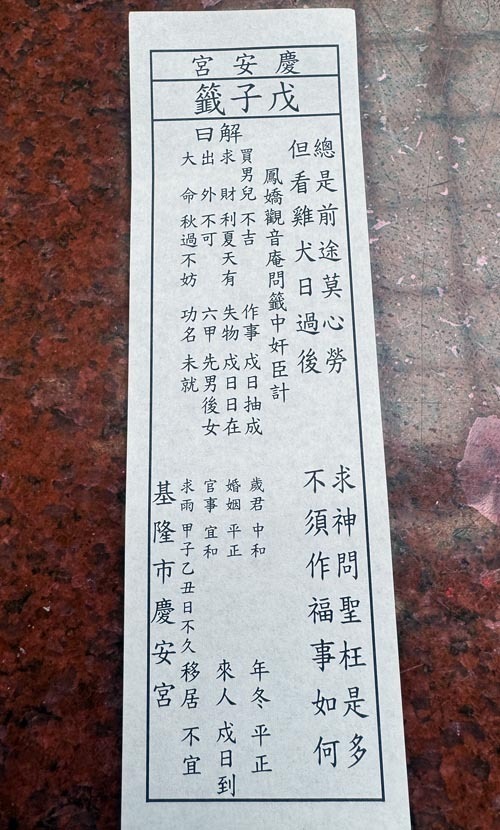 慶安宮
戊子籤
總是前途莫心勞 求神問聖枉是多
但看雞犬日過後 不須作福事如何
鳳嬌觀音庵問籤中奸臣計
解曰
買男兒 不吉 作事 戍日抽成 歲君 中和 年冬 平正
求財 利夏天有 失物 戍日日在 婚姻 平正 來人 戍日到
出外 不可 六甲 先男後女 官事 宜和
大命 秋過不妨 功名 未就 求雨 甲子乙丑日不久 移居 不宜
基隆市慶安宮